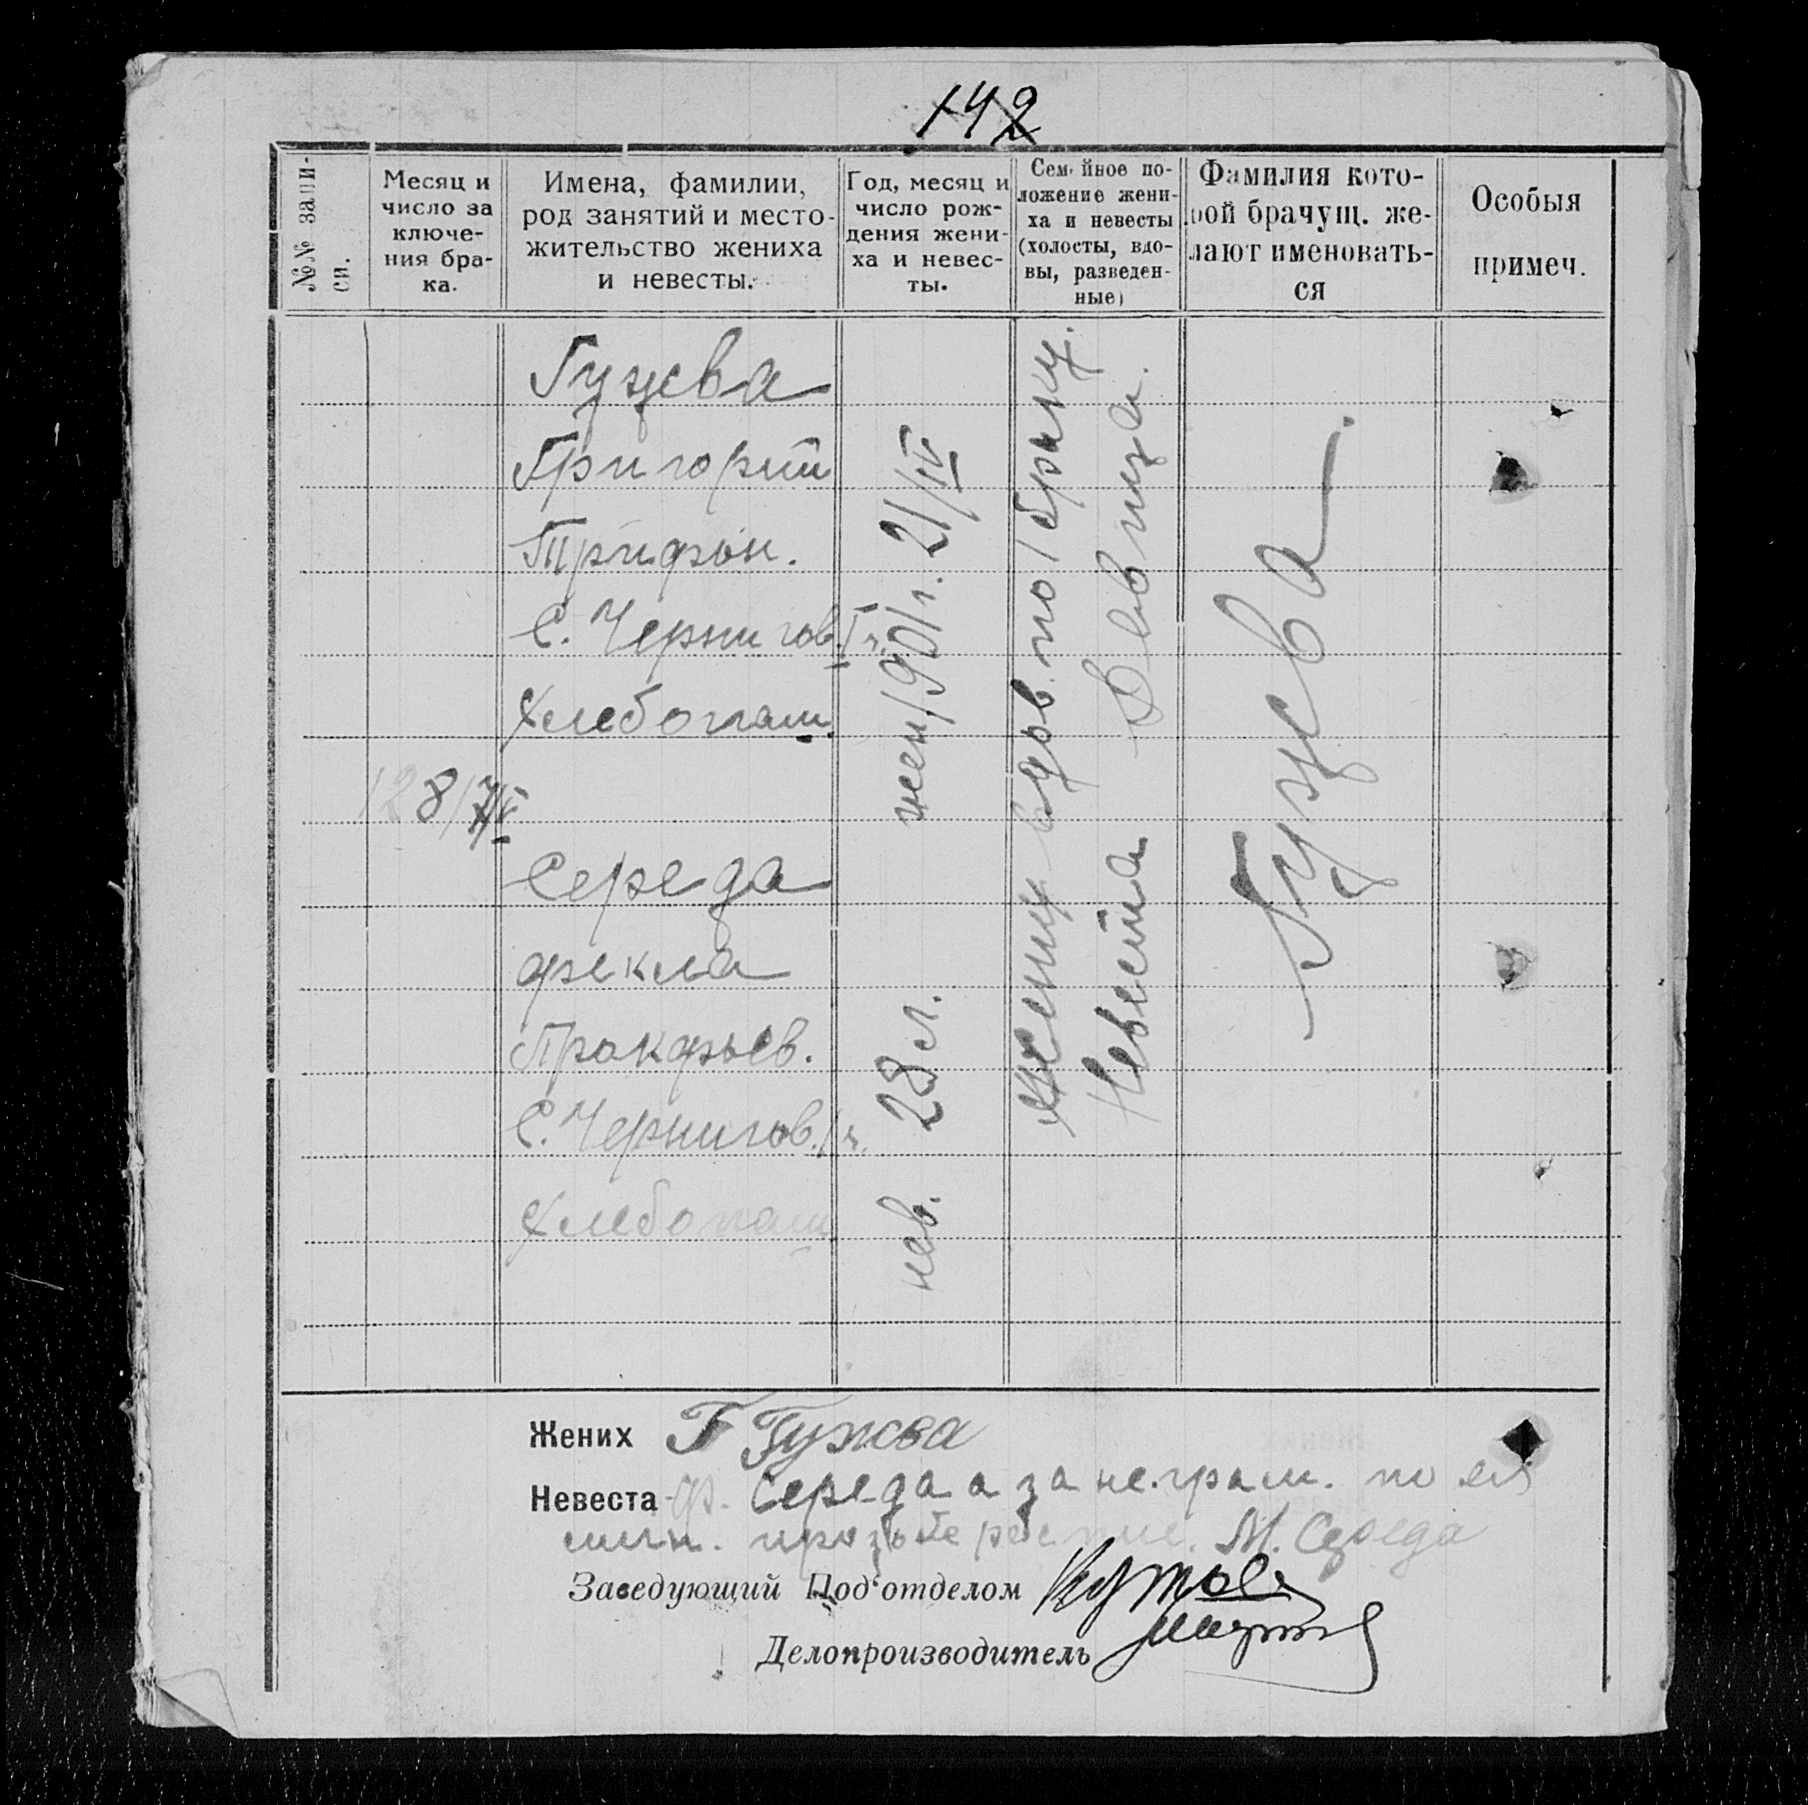 142
№№ запи-
си.
Месяц и
число за
ключе-
ния бра-
ка.
Имена, фамилии,
род занятий и место-
жительство жениха
и невесты.
Год, месяц и
число рож-
дения жени-
ха и невес-
ты.
Семейное по-
ложение жени-
ха и невесты
(холосты, вдо-
вы, разведен-
ные)
Фамилия кото-
рой брачущ. же-
лают именовать-
ся
Особыя
примеч.
Гужва
Григорий
Трифон.
С. Чернигов. I ч.
Хлебопаш.
128/
Середа
Фекла
Прокфьев.
С. Чернигов. I ч.
Хлебопаш
жен. 1901 г. 21/IV
нев. 23 л.
жених вдов. по I браку.
Невеста Девица.
Гужева.
Жених Г Гужва
Невеста Ф. Середа а за неграм. по ея
личн. прозьбе распис. М. Середа
Заведующий Под'отделом
Делопроизводитель